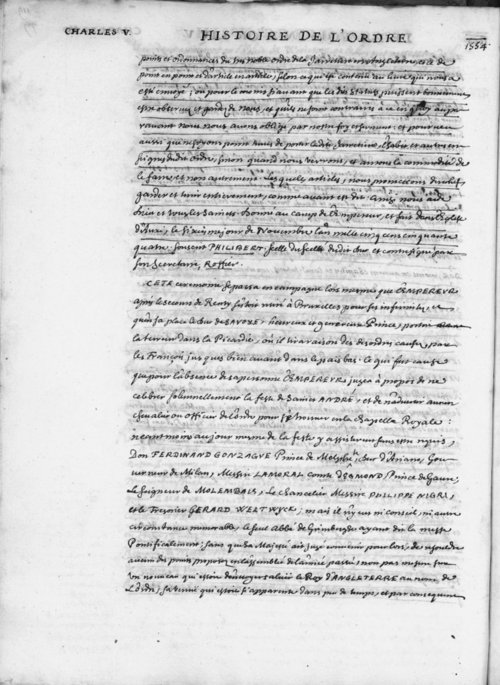 CHARLES V. HISTOIRE DE L'ORDRE 1554.
points et ordonnances du tres noble ordre de la Jarretiere en Angleterre, et de
point en point et d'article en article, selon ce qui est contenu au livre qui nous a
esté envoyé; ou pour le moins, avant que les dits statuts puissent bonnement
estre observez et gardez de nous, et qu'ils ne soient contraires à ce
auparavant nous nous avons obligé par nostre foy et serment: et pourveu
aussi que ne soyons point tenus de porter ledit habit et autres en-
signes dudit Ordre, sinon quand nous verrons, et aurons la commodité de
le faire, et non autrement. les quels articles, nous promettons
garder et tenir entierement, comme avant est dit. ainsi nous aide
Dieu et tous les Saincts. Donné au camp de l'Empereur, et fait dans l'Eglise
d'Auxi, le sixiesme jour de Novembre l'an mille cinq cens cinquante
quatre. soussigné PHILIBERT. seellé du seel dudit duc et contresigné par
son Secretaire,
CETE ceremonie se passa en campagne lors mesmes que l'EMPEREUR
apres le secours de Renty s'estoit retiré à Bruxelles pour ses infirmitez, et
qu'en sa place le duc de SAVOYE, heureux et genereux Prince, portoit
la terreur dans la Picardie, où il desordres causez par
les François jusques bien avant dans le païs bas. ce qui fut cause
que pour l'absence de sa personne l'EMPEREUR jugea à propos de ne
celebrer solemnellement la feste de Sainct ANDRÉ, et de n'advertir aucun
chevalier ou officier de l'ordre pour s'y trouver en la chapelle Royale:
neantmoins au jour mesme de la feste y assisterent sans estre requis,
Don FERDINAND GONZAGUE Prince de Melphe, duc d'Ariane, Gou-
verneur de Milan, Messire LAMORAL comte d'EGMOND Prince de Gavre,
le Seigneur de MOLEMBAIS, le Chancelier Messire PHILIPPE NIGRI,
et le Tresorier GERARD WEATWYCK; mais il n'y eut ni conseil, ni autre
circonstance memorable, le seul Abbé de Grimberghe ayant dit la messe
Pontificalement; sans que Sa Majesté ait jugé convenir pour lors, de resoudre
aucun des points proposez en l'assemblée de l'année passée; non pas mesme sur
un nouveau qui estoit le Roy d'ANGLETERRE au nom de
l'Ordre, sa venuë qui estoit s'apparente dans peu de temps, et par consequent